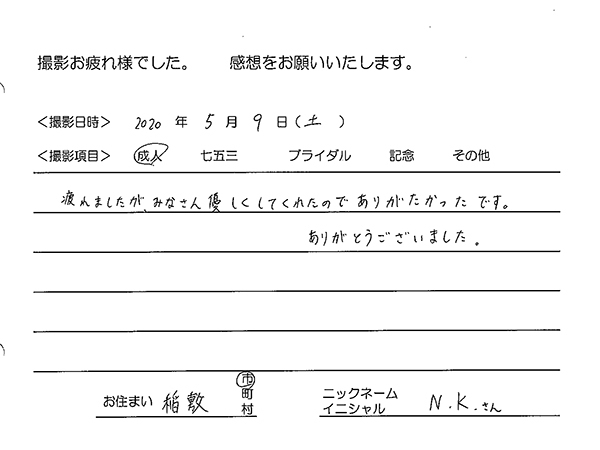 撮影お疲れ様でした。　感想をお願いいたします。
＜撮影日時＞ 2020 年 5 月 9 日（土）
＜撮影項目＞ 成人 七五三 ブライダル 記念 その他
疲れましたが、みなさん優しくしてくれたのでありがたかったです。
ありがとうございました。
お住まい 稲敷 市 町 村 ニックネーム イニシャル N.K.さん